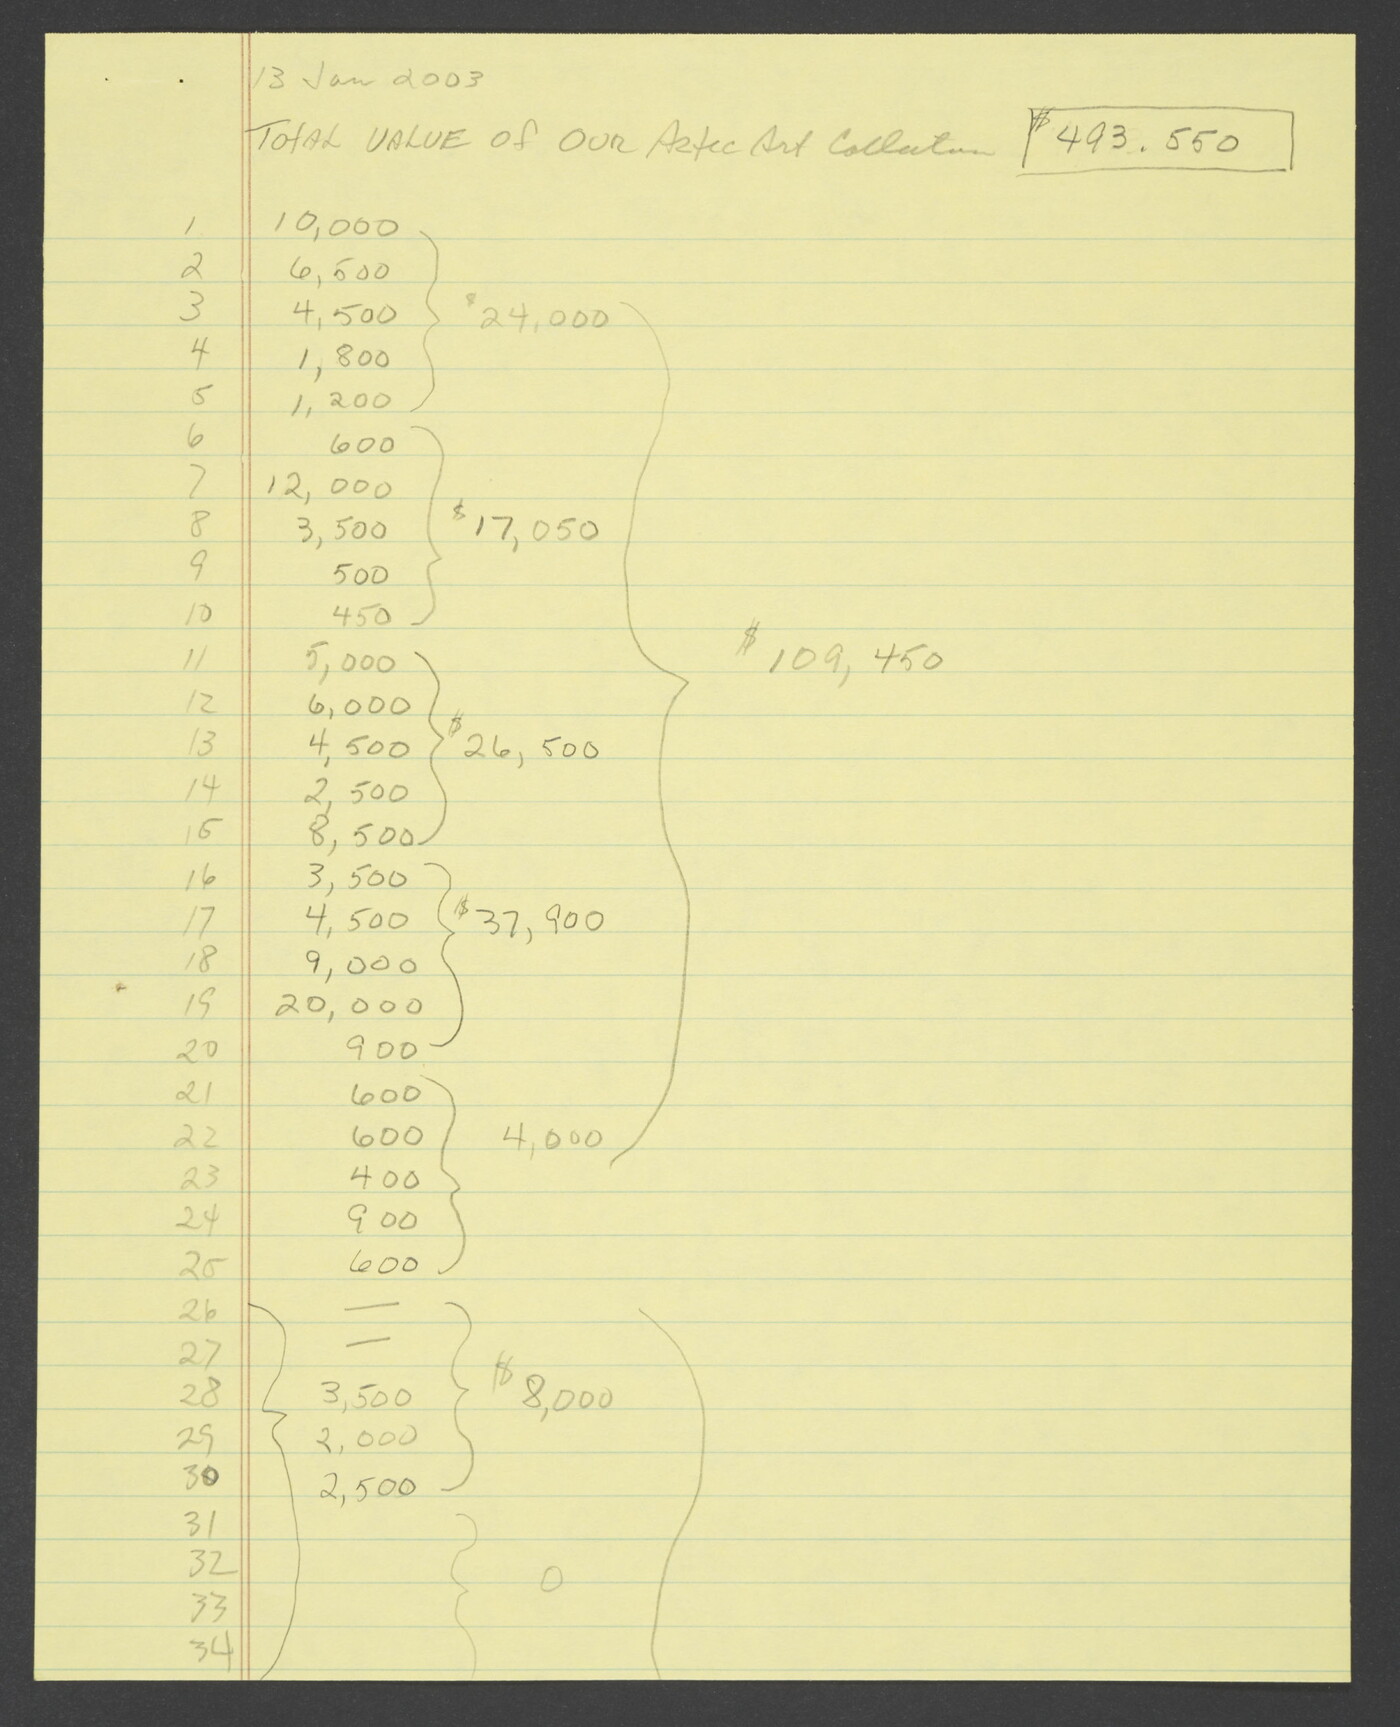 13 Jan 2003
TOTAL VALUE OF OUR Aztec Art Collection $493.550
1 10,000
2 6,500
3 4,500 $24,000
4 1,800
5 1,200
6 600
7 12,000
8 3,500 $17,050
9 500
10 450
11 5,000 $109,450
12 6,000
13 4,500 $26,500
14 2,500
15 8,500
16 3,500
17 4,500 $37,900
18 9,000
19 20,000
20 900
21 600
22 600 4,000
23 400
24 900
25 600
26 —
27 —
28 3,500 $8,000
29 2,000
30 2,500
31
32 0
33
34